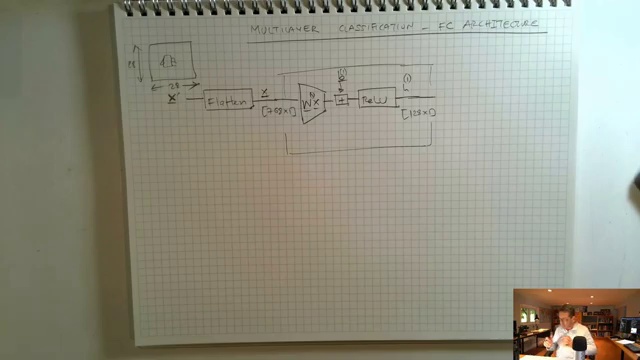 MULTILAYER CLASSIFICATION - FC ARCHITECTURE
28
28
x' Flatten x W(1) x + b(1) ReLU h(1)
[768x1] [128x1]